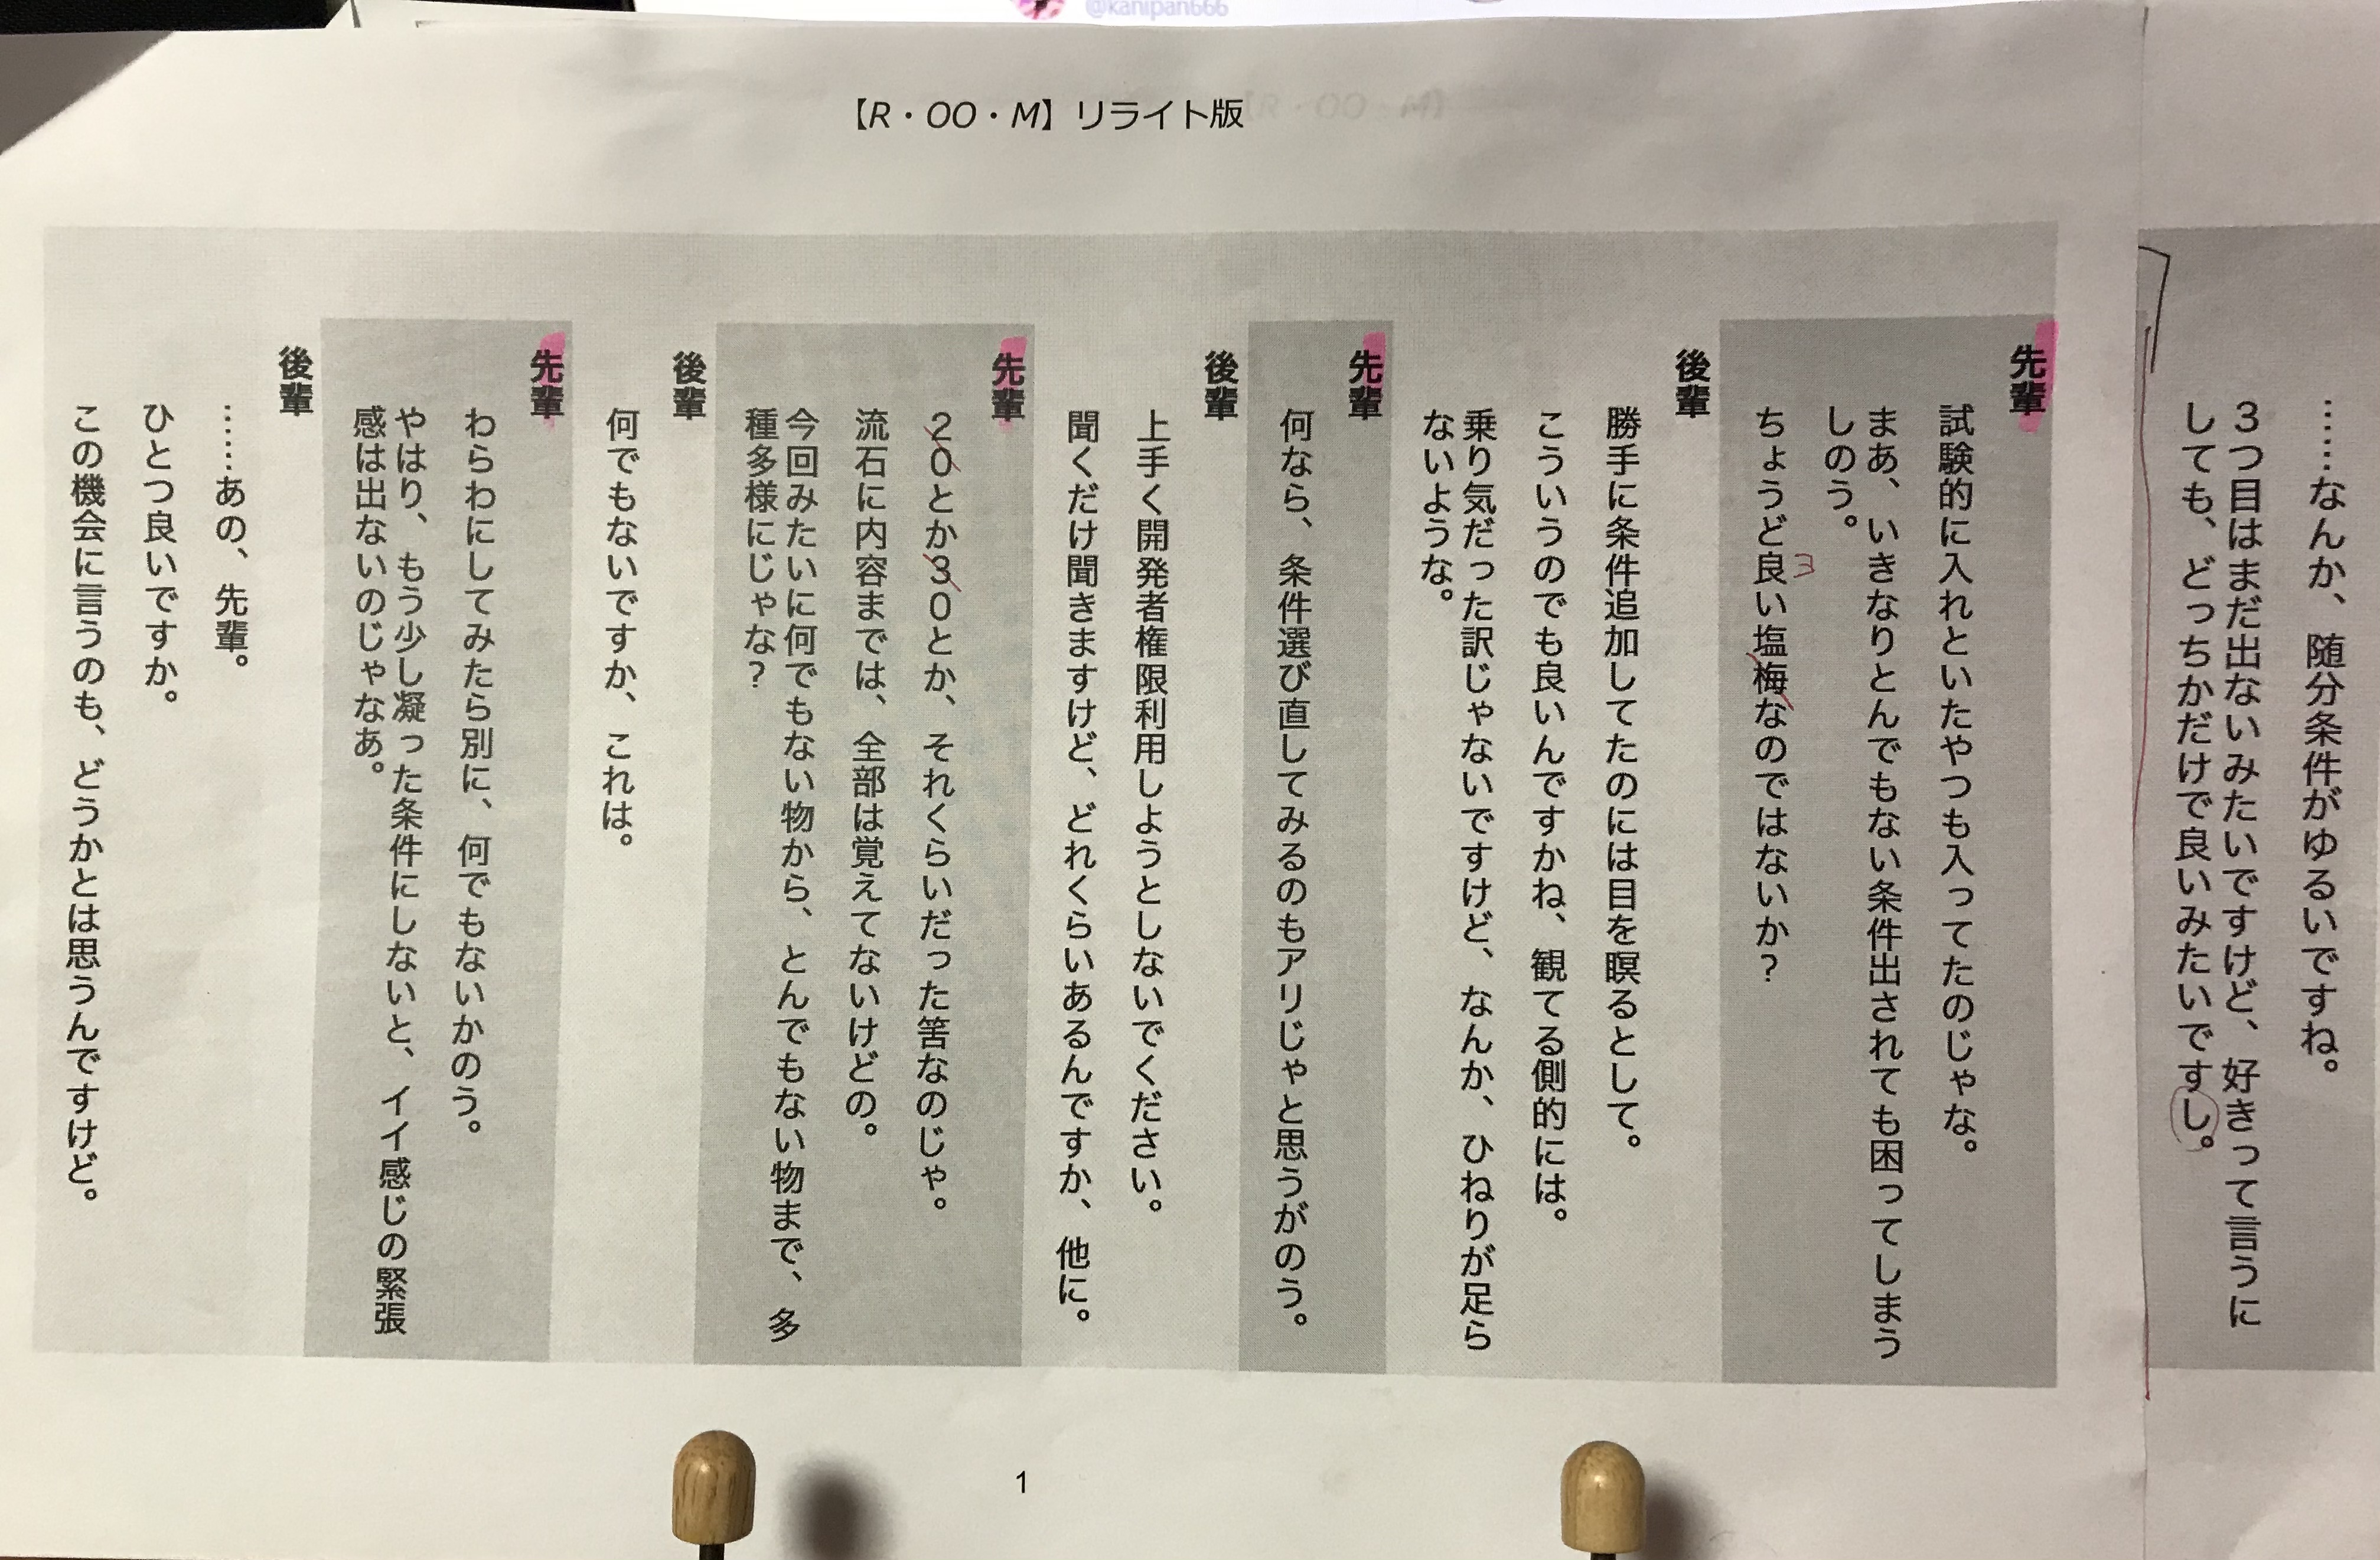 @kanipan666
【R・OO・M】リライト版
……なんか、随分条件がゆるいですね。
3つ目はまだ出ないみたいですけど、好きって言うに
しても、どっちかだけで良いみたいですし。
先輩
試験的に入れといたやつも入ってたのじゃな。
まあ、いきなりとんでもない条件出されても困ってしまう
しのう。
ちょうど良い塩梅なのではないか?
ヨ
後輩
勝手に条件追加してたのには目を瞑るとして。
こういうのでも良いんですかね、観てる側的には。
乗り気だった訳じゃないですけど、なんか、ひねりが足ら
ないような。
先輩
何なら、条件選び直してみるのもアリじゃと思うがのう。
後輩
上手く開発者権限利用しようとしないでください。
聞くだけ聞きますけど、どれくらいあるんですか、他に。
先輩
20とか30とか、それくらいだった筈なのじゃ。
流石に内容までは、全部は覚えてないけどの。
今回みたいに何でもない物から、とんでもない物まで、多
種多様にじゃな?
後輩
何でもないですか、これは。
先輩
わらわにしてみたら別に、何でもないかのう。
やはり、もう少し凝った条件にしないと、イイ感じの緊張
感は出ないのじゃなあ。
後輩
……あの、先輩。
ひとつ良いですか。
この機会に言うのも、どうかとは思うんですけど。
1